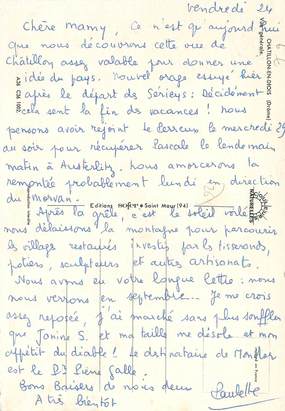 vendredi 24
Chère Mamy, Ce n'est qu'aujourd'hui
que nous découvrons cette vue de
Châtillon assez valable pour donner une
idée du pays. Nouvel orage essuyé hier
après le départ des Sérieys : Décidément
cela sent la fin des vacances ! nous
pensons avoir rejoint le Perreux le mercredi 29
au soir pour récupérer Pascale le lendemain
matin à Austerlitz. nous amorcerons la
remontée probablement lundi en direction
du Morvan.
Après la grêle, c'est le soleil voilé
nous délaissons la montagne pour parcourir
les villages restaurés investis par les tisserands,
potiers, sculpteurs et autres artisanats.
Nous avons eu votre longue lettre : nous
nous verrons en septembre... Je me crois
assez reposée, j'ai marché sans plus souffler
que Janine S. et ma taille me désole et mon
appétit du diable ! Le destinataire de
est le Dr Pierre Galle.
Bons Baisers de nous deux
A très bientôt
Paulette
CHATILLON-EN-DIOIS (Drôme)
Vue générale.
A26 C26 1002.
Editions
Saint Maur (94)